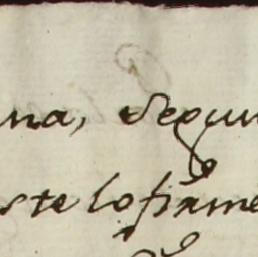 na, Segun
ste lo firme